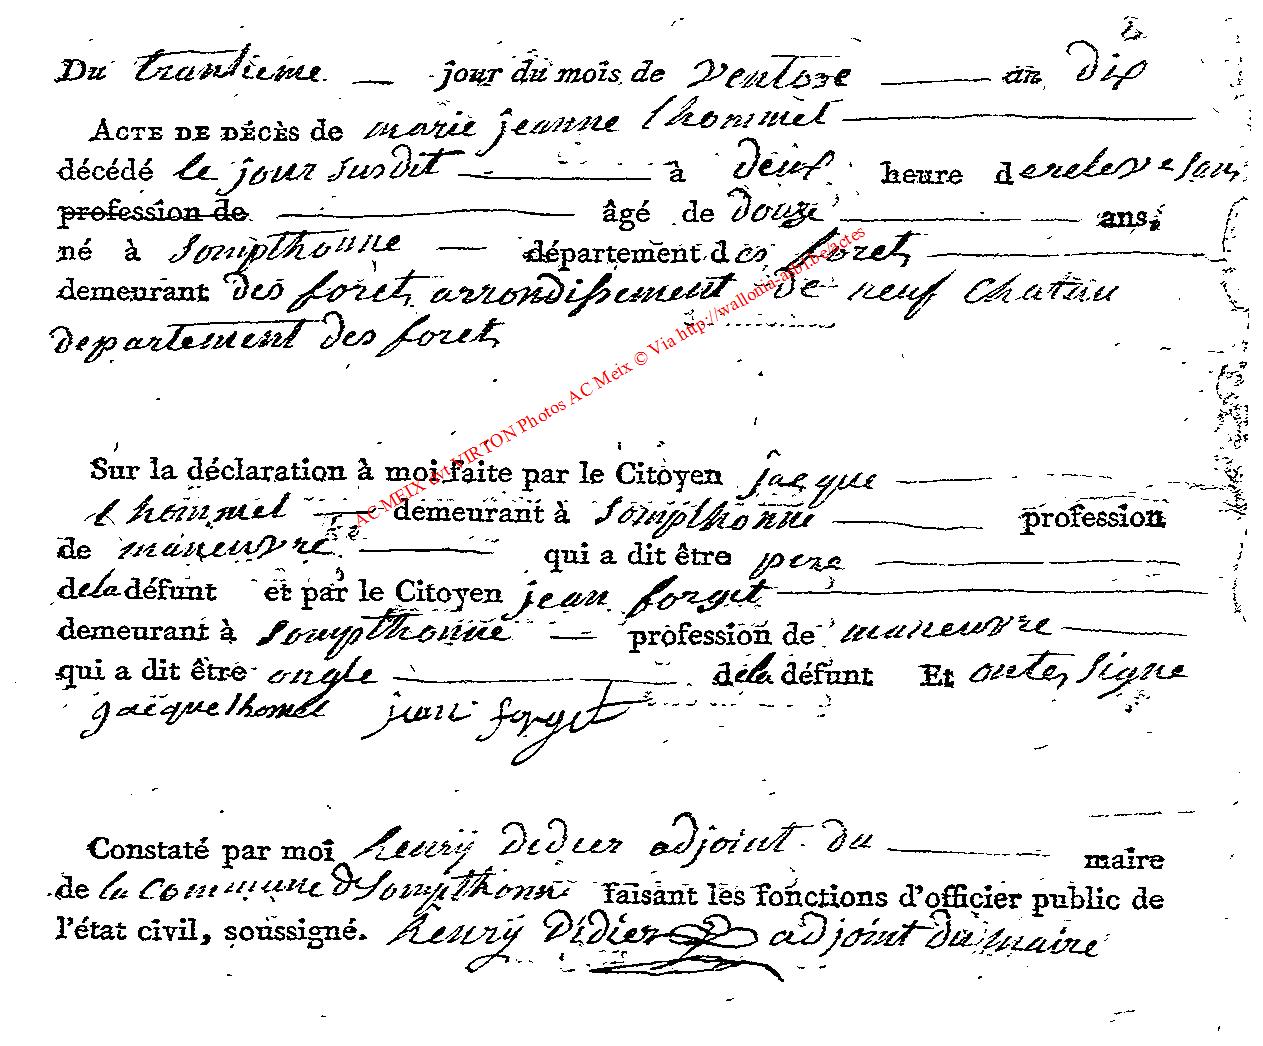 Du trantieme jour du mois de ventose an dix
ACTE DE DÉCÈS de marie jeanne l hommel
décédé le jour susdit à deux heure de releve
profession de âgé de douze ans,
né à Sompthonne département des foret
demeurant des foret arrondissement de neuf chatau
departement des foret
Sur la déclaration à moi faite par le Citoyen jacque
l hommel demeurant à Sompthonne profession
de maneuvre qui a dit être pere
dela défunt et par le Citoyen jean forget
demeurant à Sompthonne profession de maneuvre
qui a dit être ongle dela défunt Et onte signe
jacque lhomel jean forget
Constaté par moi henrÿ didier adjoint du maire
de la commune d Sompthonne faisant les fonctions d'officier public de
l'état civil, soussigné. henrÿ didier adjoint du maire
AC-MEIX dvt VIRTON Photos AC Meix © Via http://wallonia-asbl.be/actes